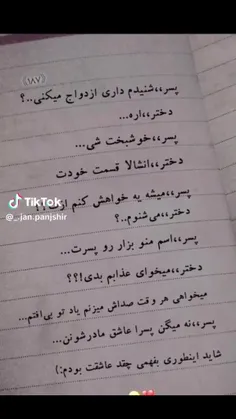 (۱۸۷)
پسر،،شنیدم داری ازدواج میکنی..؟
دختر،،اره...
پسر،،خوشبخت شی...
دختر،،انشالا قسمت خودت
پسر،،میشه یه خواهش کنم ازت؟؟
دختر،،می‌شنوم..؟
پسر،،اسم منو بزار رو پسرت...
دختر،،میخوای عذابم بدی!؟؟
میخواهی هر وقت صداش میزنم یاد تو بی‌افتم...
پسر،،نه میگن پسرا عاشق مادرشونن...
شاید اینطوری بفهمی چقد عاشقت بودم:)
TikTok
@_.jan.panjshir